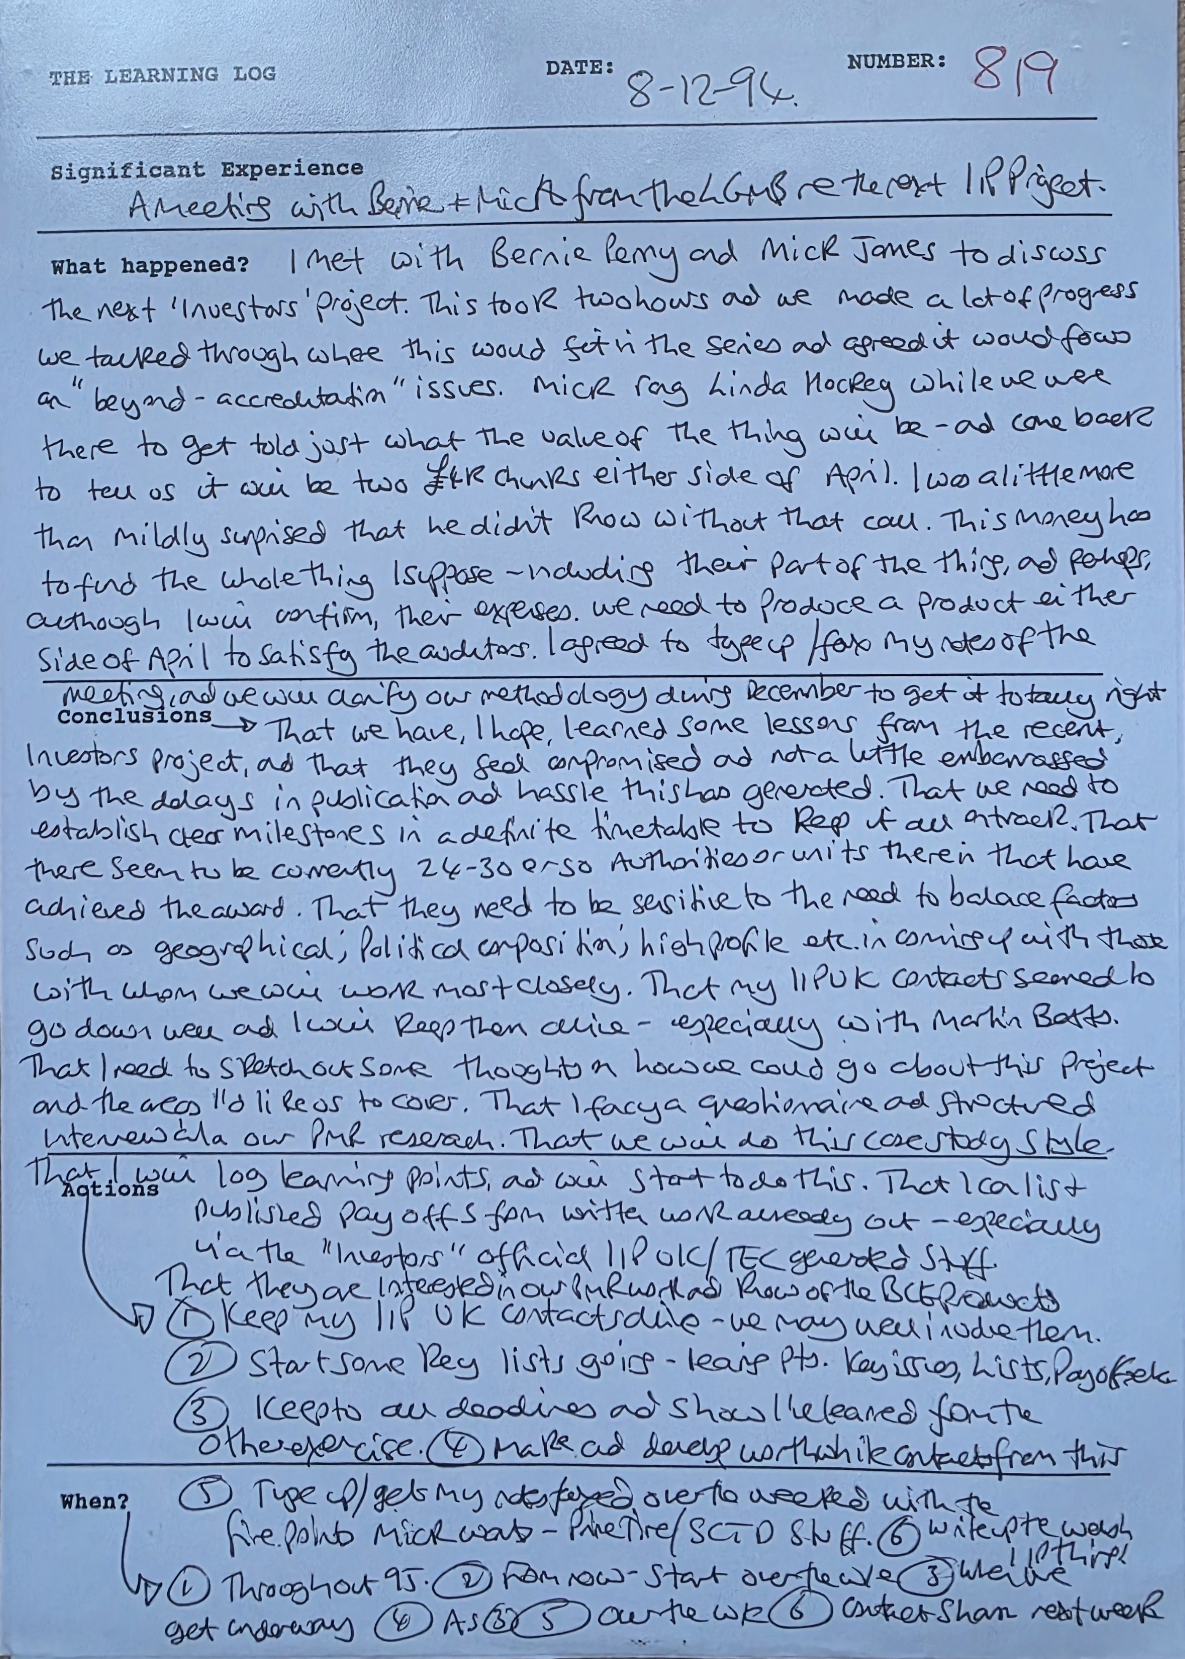 THE LEARNING LOG DATE: 8-12-94. NUMBER: 819
Significant Experience
A meeting with Bernie + Mick from the LGMB re the next IIP Project.
What happened? I met with Bernie Perry and Mick James to discuss
the next 'Investors' project. This took two hours and we made a lot of progress
we talked through where this would fit in the series and agreed it would focus
on "beyond-accreditation" issues. Mick rang Linda Hockey while we were
there to get told just what the value of the thing will be - and came back
to tell us it will be two £4K chunks either side of April. I was a little more
than mildly surprised that he didn't know without that call. This money has
to fund the whole thing I suppose - including their part of the thing, and perhaps,
although I will confirm, their expenses. We need to produce a product either
side of April to satisfy the auditors. I agreed to type up/fax my notes of the
meeting, and we will clarify our methodology during December to get it totally right
Conclusions → That we have, I hope, learned some lessons from the recent,
Investors project, and that they feel compromised and not a little embarrassed
by the delays in publication and hassle this has generated. That we need to
establish clear milestones in a definite timetable to keep it all on track. That
there seem to be currently 24-30 or so Authorities or units therein that have
achieved the award. That they need to be sensitive to the need to balance factors
such as geographical; political composition; high profile etc. in coming up with those
with whom we will work most closely. That my IIP UK contacts seemed to
go down well and I will keep them alive - especially with Martin Batts.
That I need to sketch out some thoughts on how we could go about this project
and the areas I'd like us to cover. That I fancy a questionnaire and structured
interview a la our PMR research. That we will do this case study style.
That I will log learning points, and will start to do this. That I can list
Actions
published pay offs from written work already out - especially
via the "Investors" official IIP UK/TEC generated stuff.
That they are interested in our PMR work and know of the BCE products
① Keep my IIP UK contacts alive - we may well involve them.
② Start some key lists going - learning pts. Key issues, Lists, Payoffs etc
③ Keep to all deadlines and show I've learned from the
other exercise. ④ Make and develop worthwhile contacts from this
⑤ Type up/get my notes faxed over the weekend with the
When?
fine points Mick wants - Pine Tree/SCTD stuff. ⑥ Write up the Welsh
IIP thing!
① Throughout 95. ② From now - start over the w/e ③ When we
get underway ④ As ③ ⑤ Over the wk ⑥ Contact Sharn next week